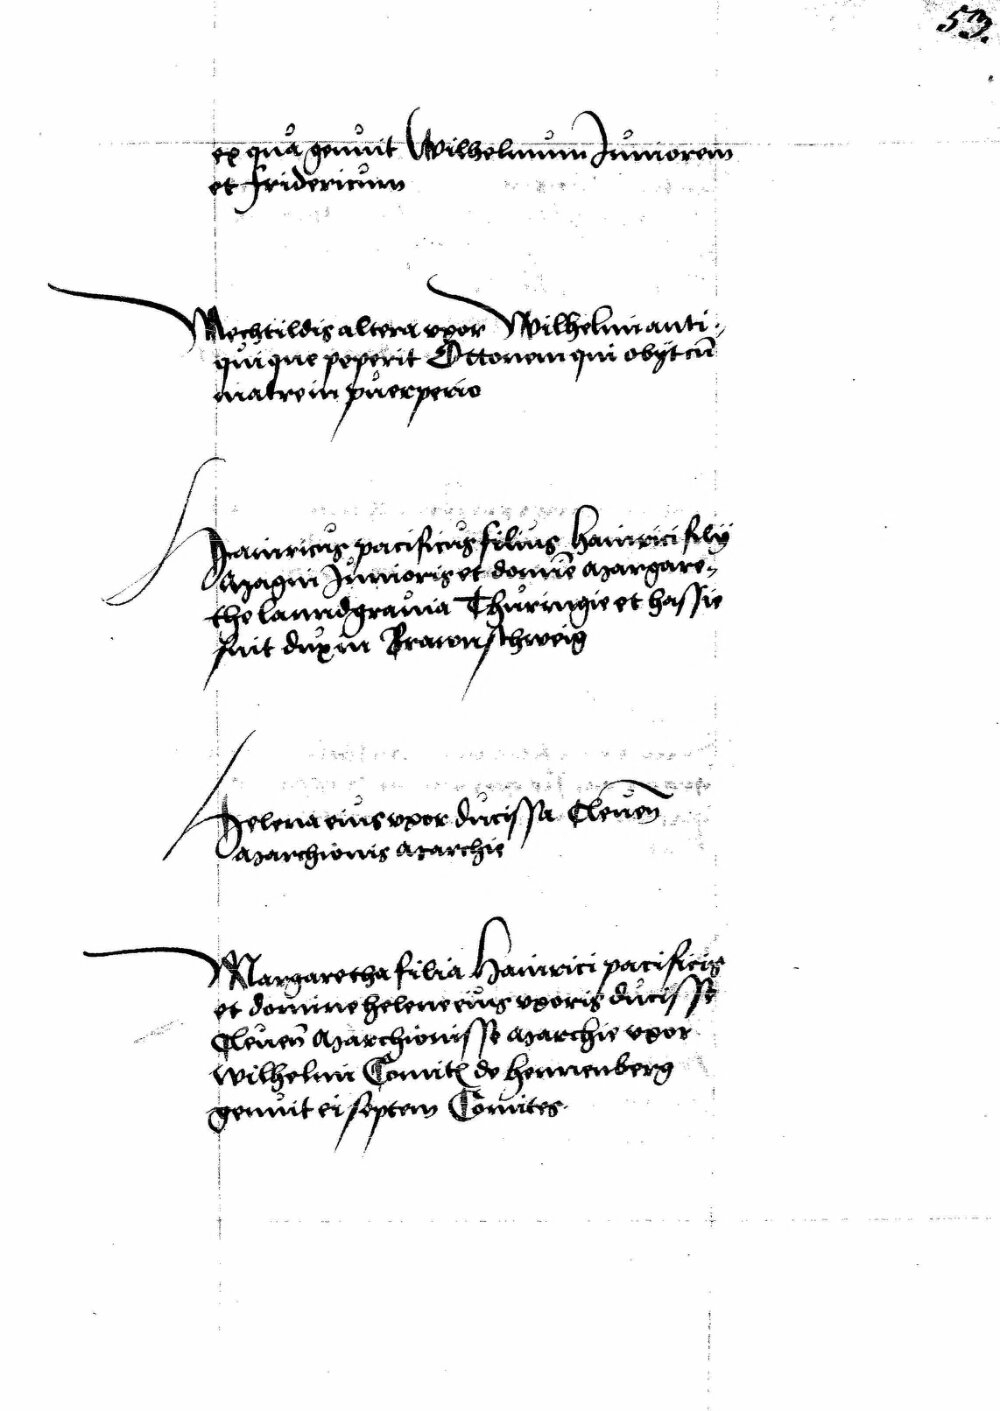 53.
ex qua genuit Wilhelmum Juniorem
et fridericum
Mechtildis altera vxor Wilhelmi anti-
qui que peperit Ottonem qui obijt cū
matre in puerperio
Hainricus pacificus filius Hainrici filij
Magni Junioris et domīe Margare-
the lanndgrauia Thuringie et hassie
fuit dux in Brawnschweig
Helena eius vxor ducissa Cleueñ
Marchionis Marchie
Margaretha filia Hainrici pacificis
et domine helene eius vxoris ducisse
Cleueñ Marchionisse Marchie vxor
Wilhelmi Comit de hennenberg
genuit ei septem Comites.